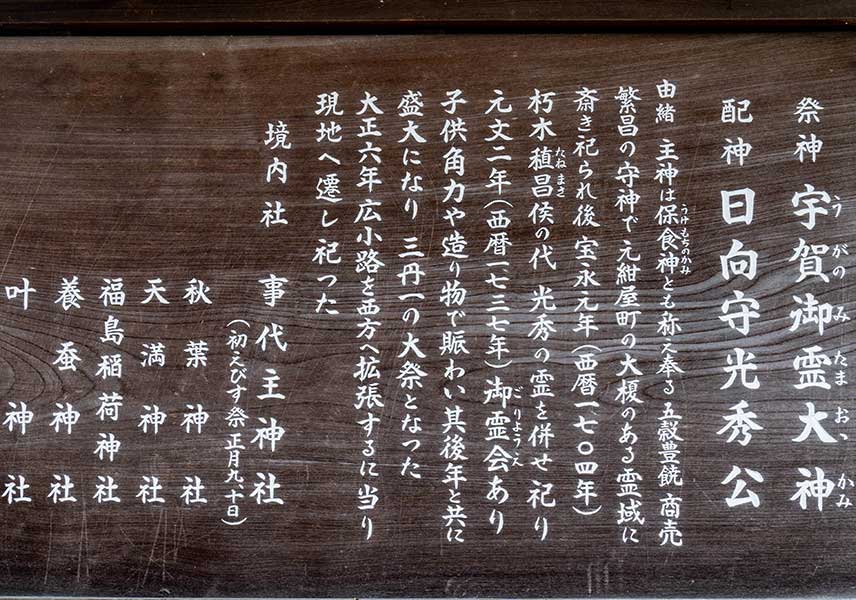 祭神 宇賀御霊大神
うがのみたまおゝかみ
配神 日向守光秀公
由緒 主神は保食神とも称え奉る 五穀豊饒 商売
うけもちのかみ
繁昌の守神で元紺屋町の大榎のある霊域に
斎き祀られ後 宝永元年(西暦一七〇四年)
朽木稙昌侯の代 光秀の霊を併せ祀り
たねまさ
元文二年(西暦一七三七年)御霊会あり
ごりようえ
子供角力や造り物で賑わい其後年と共に
盛大になり 三丹一の大祭となった
大正六年広小路を西方へ拡張するに当り
現地へ遷し祀つた
境内社 事代主神社
(初えびす祭 正月九、十日)
秋葉神社
天満神社
福島稲荷神社
養蚕神社
叶神社